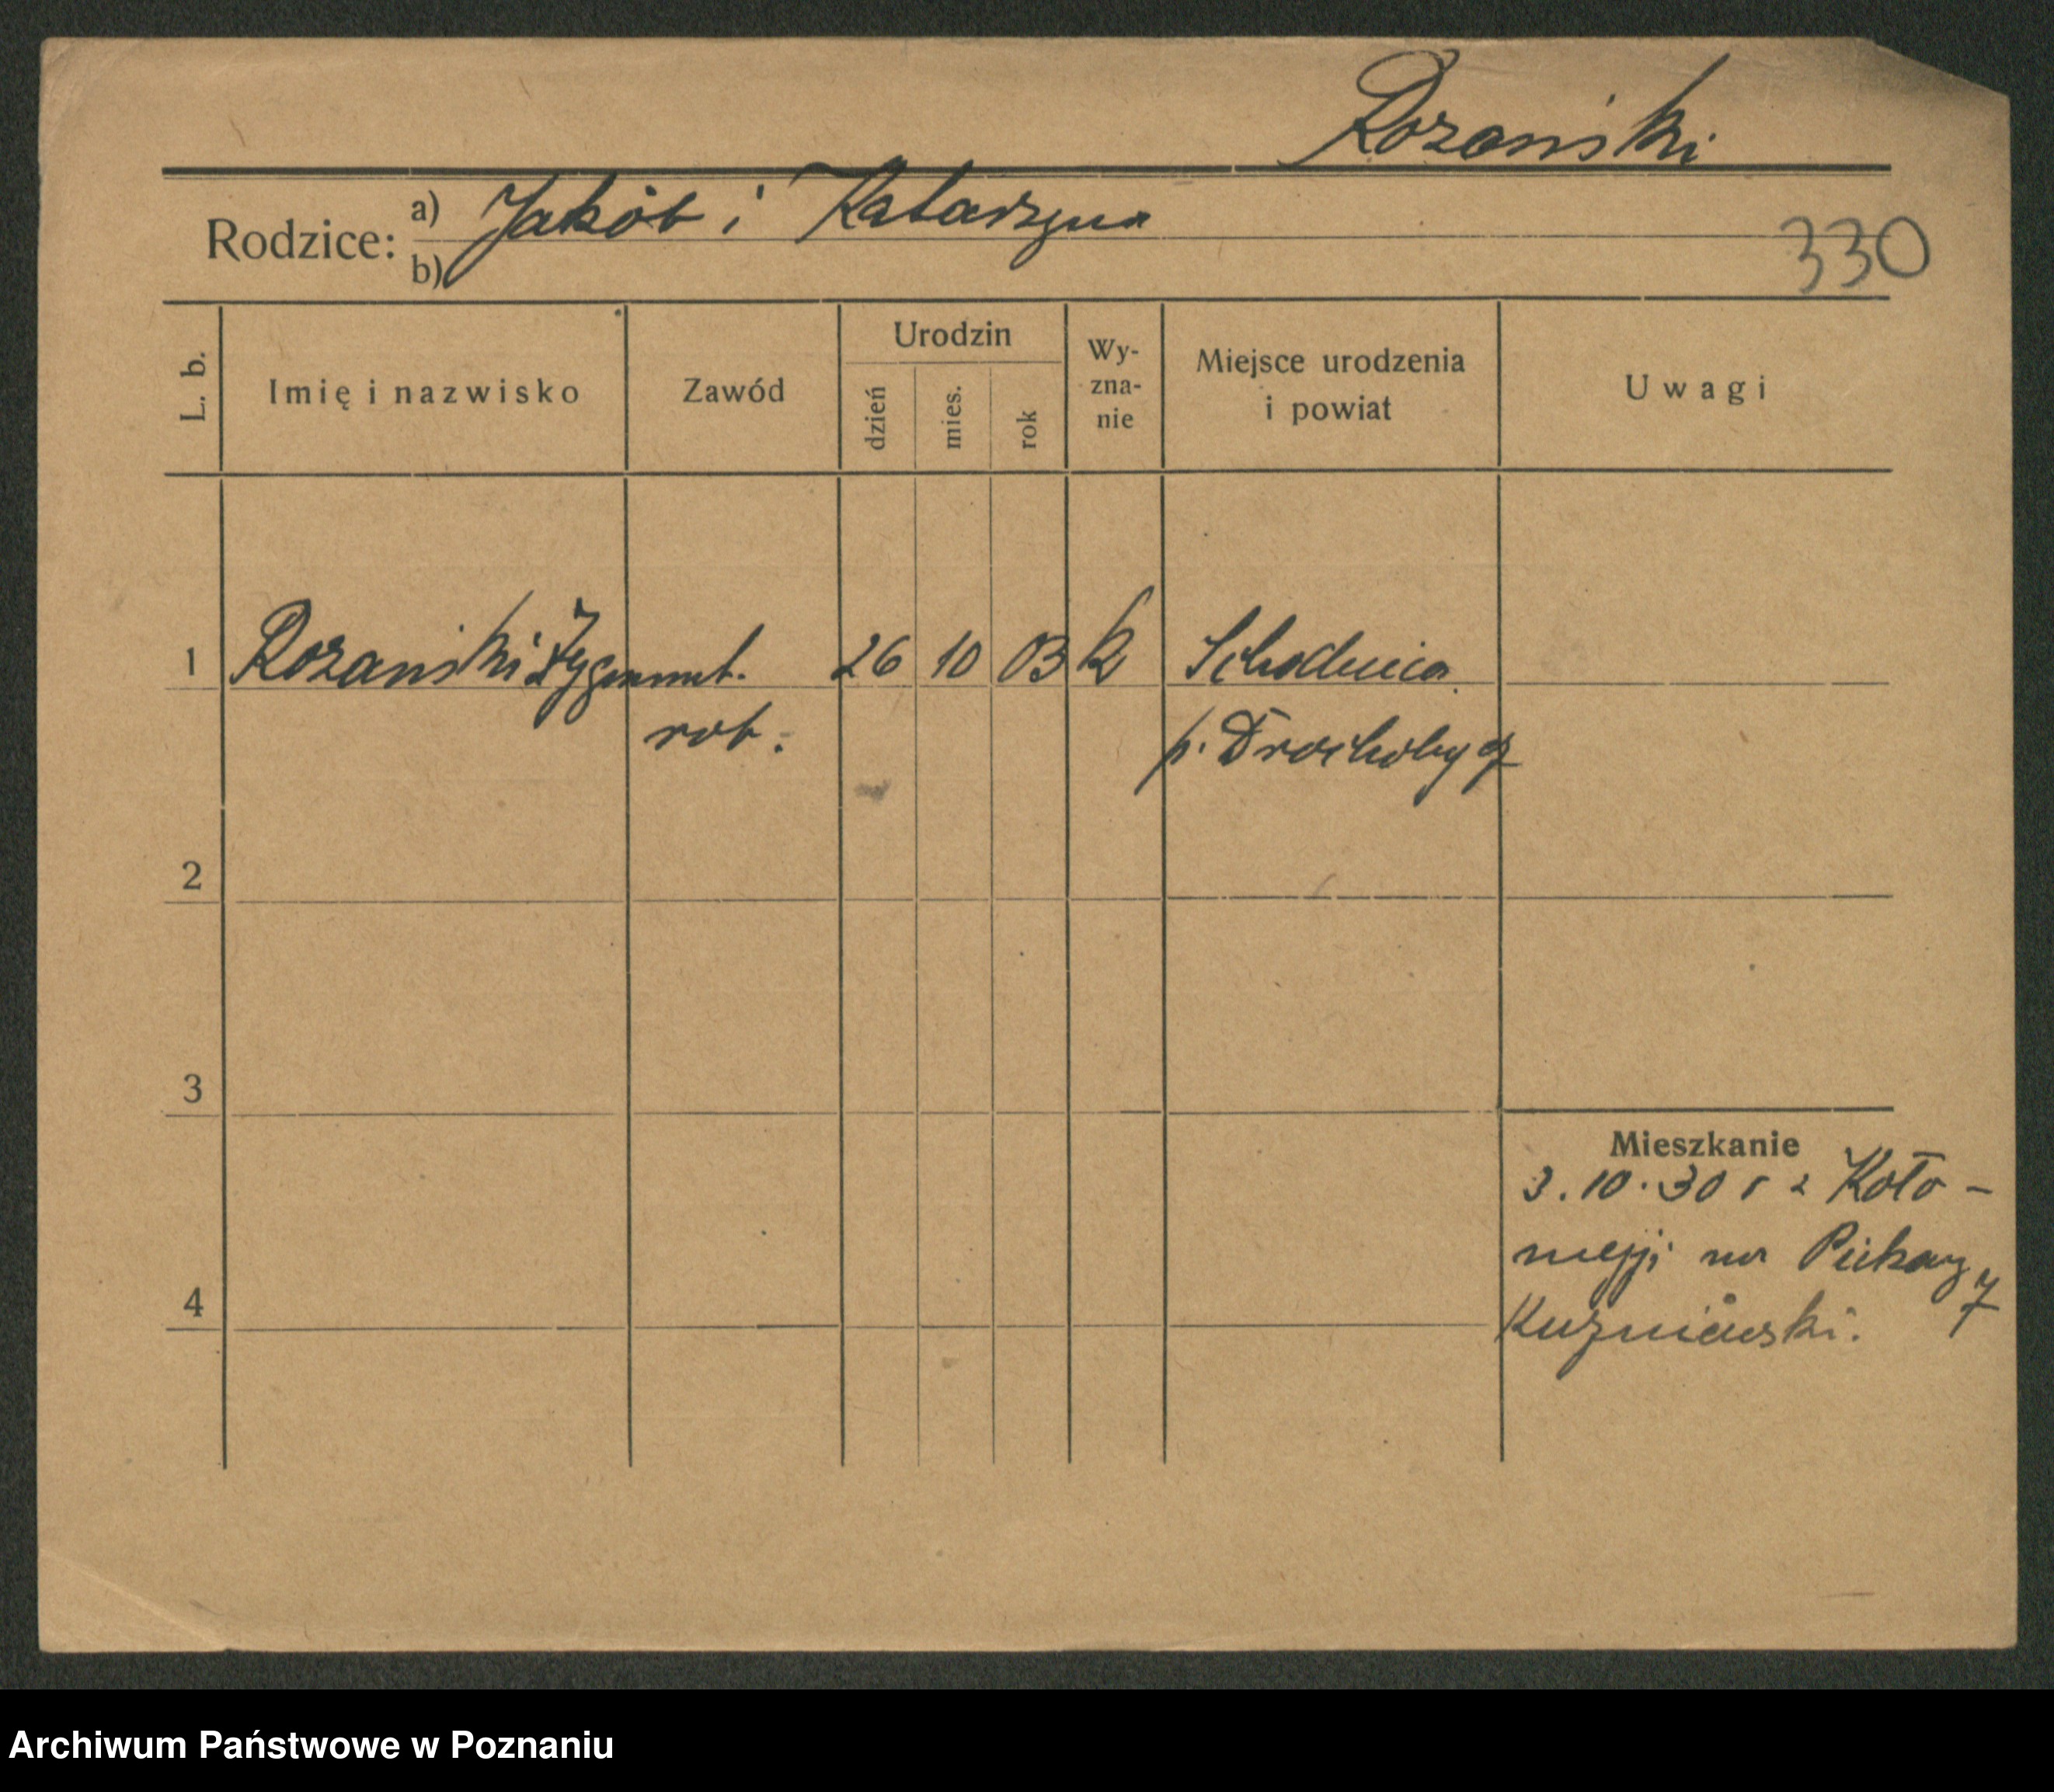 Rozański
Rodzice: a) Jakób i Katarzyna
b)
330
L. b.
Imię i nazwisko
Zawód
Urodzin
dzień
mies.
rok
Wy-
zna-
nie
Miejsce urodzenia
i powiat
Uwagi
1 Rozański Zygmunt. 26 10 03 k Schodnica
rob. p. Drochobycz
2
3
4
Mieszkanie
3.10.30 r z Koło-
meji na Piekary 7
Kuzniewski.
Archiwum Państwowe w Poznaniu